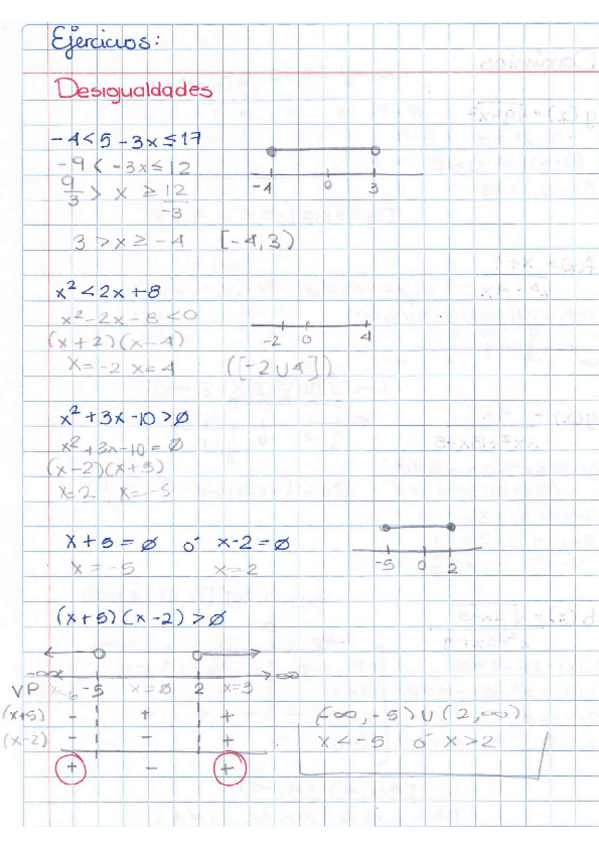 Ejercicios:
Desigualdades
-4<5-3x≤17
-9<-3x≤12
9/3 > x ≥ 12/-3
-4 0 3
3>x≥-4 [-4,3)
x²<2x+8
x²-2x-8<0
(x+2)(x-4)
-2 0 4
x=-2 x=4 ([-2∪4])
x²+3x-10>0
x²+3x-10=0
(x-2)(x+5)
x=2 x=-5
x+5=0 ó x-2=0
x=-5 x=2
-5 0 2
(x+5)(x-2)>0
-∞ ∞
VP x=-6 -5 x=0 2 x=3
(x+5) - + + (-∞,-5)∪(2,∞)
(x-2) - - + x<-5 ó x>2
+ - +